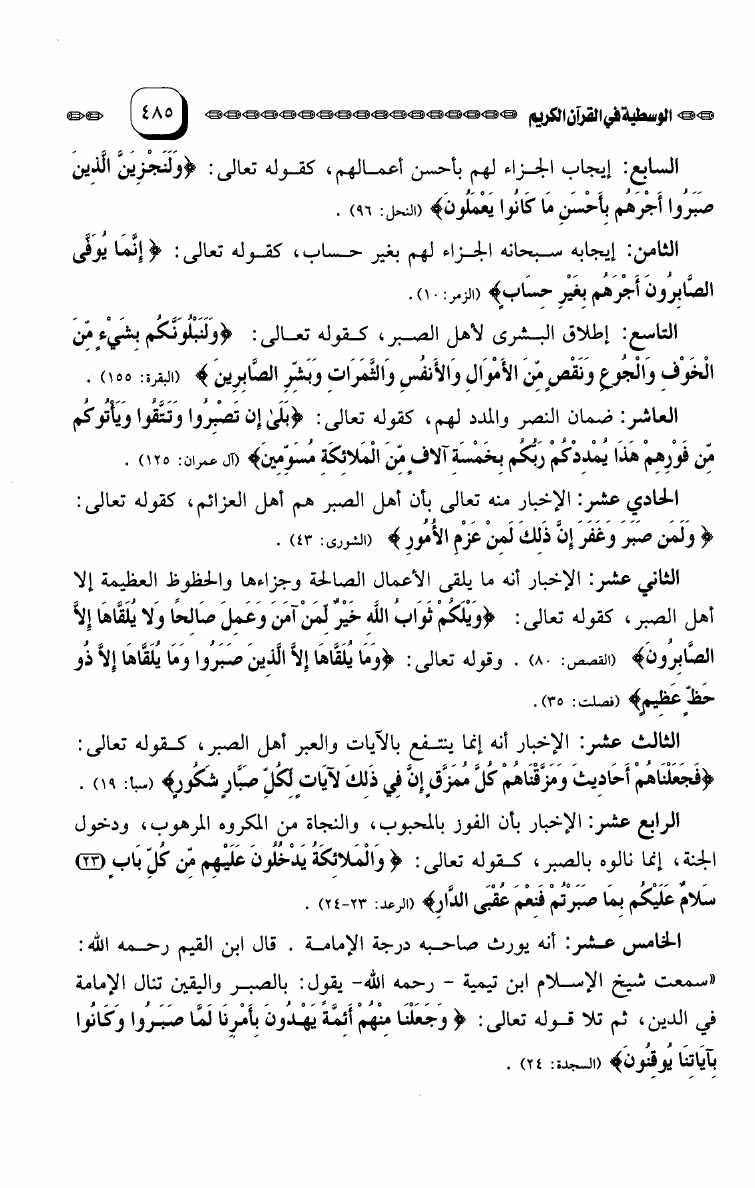 الوسطية في القرآن الكريم ٤٨٥
السابع: إيجاب الجزاء لهم بأحسن أعمالهم، كقوله تعالى: ﴿وَلَنَجْزِيَنَّ الَّذِينَ
صَبَرُوا أَجْرَهُم بِأَحْسَنِ مَا كَانُوا يَعْمَلُونَ﴾ (النحل: ٩٦) .
الثامن: إيجابه سبحانه الجزاء لهم بغير حساب، كقوله تعالى: ﴿ إِنَّمَا يُوَفَّى
الصَّابِرُونَ أَجْرَهُم بِغَيْرِ حِسَابٍ﴾ (الزمر: ١٠).
التاسع: إطلاق البشرى لأهل الصبر، كقوله تعالى: ﴿وَلَنَبْلُوَنَّكُم بِشَيْءٍ مِّنَ
الْخَوْفِ وَالْجُوعِ وَنَقْصٍ مِّنَ الأَمْوَالِ وَالأَنفُسِ وَالثَّمَرَاتِ وَبَشِّرِ الصَّابِرِينَ ﴾ (البقرة: ١٥٥) .
العاشر: ضمان النصر والمدد لهم، كقوله تعالى: ﴿بَلَىٰ إِن تَصْبِرُوا وَتَتَّقُوا وَيَأْتُوكُم
مِّن فَوْرِهِمْ هَذَا يُمْدِدْكُمْ رَبُّكُم بِخَمْسَةِ آلافٍ مِّنَ الْمَلائِكَةِ مُسَوِّمِينَ﴾ (آل عمران: ١٢٥) .
الحادي عشر: الإخبار منه تعالى بأن أهل الصبر هم أهل العزائم، كقوله تعالى:
﴿ وَلَمَن صَبَرَ وَغَفَرَ إِنَّ ذَلِكَ لَمِنْ عَزْمِ الأُمُورِ ﴾ (الشورى: ٤٣) .
الثاني عشر: الإخبار أنه ما يلقى الأعمال الصالحة وجزاءها والحظوظ العظيمة إلا
أهل الصبر، كقوله تعالى: ﴿وَيْلَكُمْ ثَوَابُ اللَّهِ خَيْرٌ لِّمَنْ آمَنَ وَعَمِلَ صَالِحًا وَلا يُلَقَّاهَا إِلاَّ
الصَّابِرُونَ﴾ (القصص: ٨٠) . وقوله تعالى: ﴿وَمَا يُلَقَّاهَا إِلاَّ الَّذِينَ صَبَرُوا وَمَا يُلَقَّاهَا إِلاَّ ذُو
حَظٍّ عَظِيمٍ﴾ (فصلت: ٣٥).
الثالث عشر: الإخبار أنه إنما ينتفع بالآيات والعبر أهل الصبر، كقوله تعالى:
﴿فَجَعَلْنَاهُمْ أَحَادِيثَ وَمَزَّقْنَاهُمْ كُلَّ مُمَزَّقٍ إِنَّ فِي ذَلِكَ لآيَاتٍ لِّكُلِّ صَبَّارٍ شَكُورٍ﴾ (سبأ: ١٩) .
الرابع عشر: الإخبار بأن الفوز بالمحبوب، والنجاة من المكروه المرهوب، ودخول
الجنة، إنما نالوه بالصبر، كقوله تعالى: ﴿ وَالْمَلائِكَةُ يَدْخُلُونَ عَلَيْهِم مِّن كُلِّ بَابٍ (٢٣)
سَلامٌ عَلَيْكُم بِمَا صَبَرْتُمْ فَنِعْمَ عُقْبَى الدَّارِ﴾ (الرعد: ٢٣-٢٤) .
الخامس عشر: أنه يورث صاحبه درجة الإمامة . قال ابن القيم رحمه الله:
«سمعت شيخ الإسلام ابن تيمية - رحمه الله- يقول: بالصبر واليقين تنال الإمامة
في الدين، ثم تلا قوله تعالى: ﴿ وَجَعَلْنَا مِنْهُمْ أَئِمَّةً يَهْدُونَ بِأَمْرِنَا لَمَّا صَبَرُوا وَكَانُوا
بِآيَاتِنَا يُوقِنُونَ﴾ (السجدة: ٢٤) .